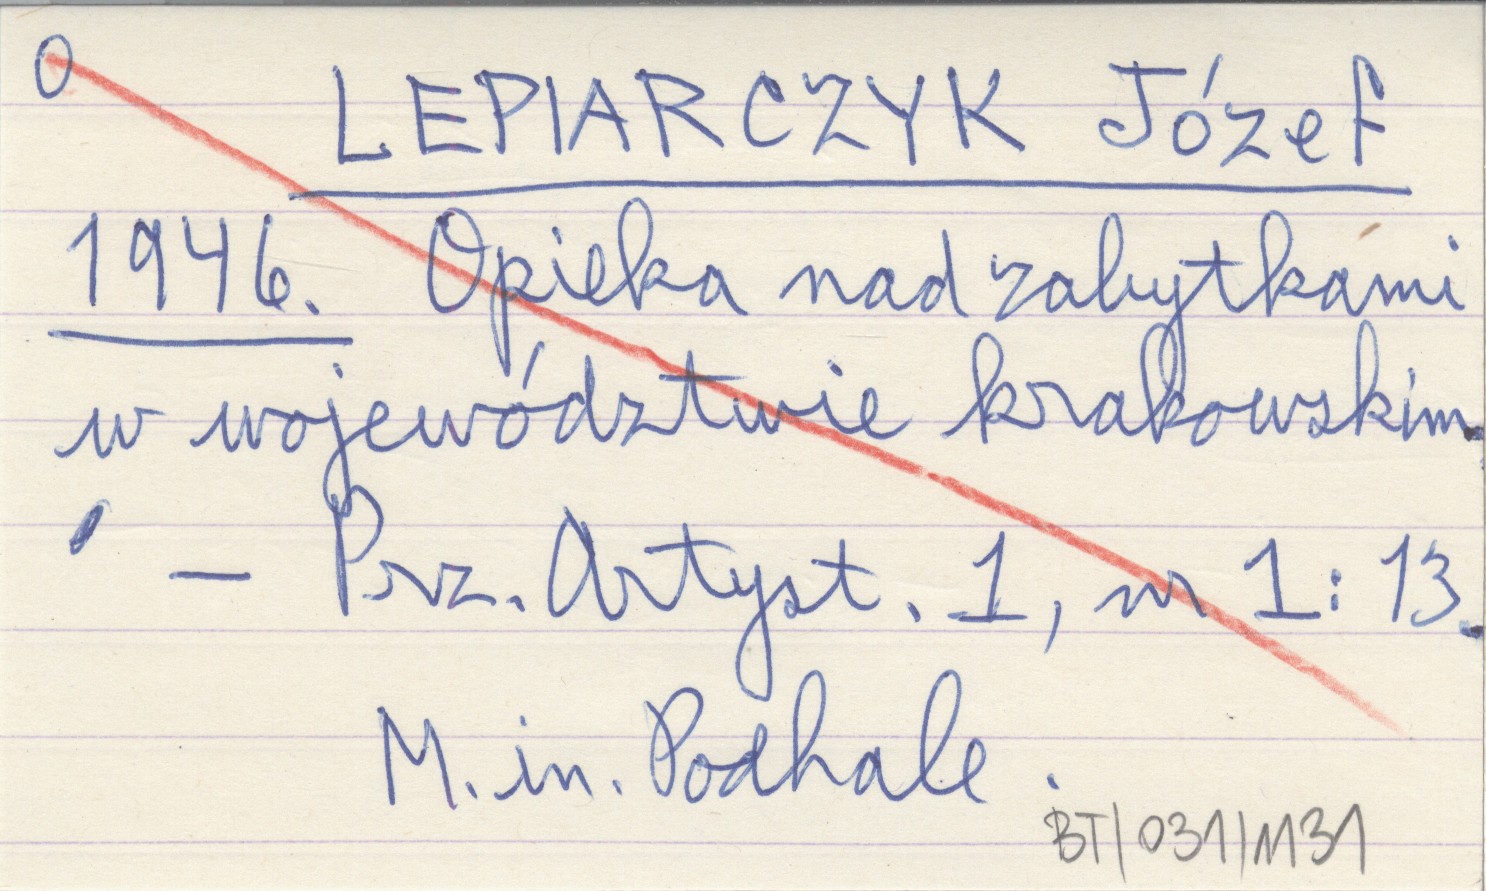 0
LEPIARCZYK Józef
1946. Opieka nad zabytkami
w województwie krakowskim.
— Prz. Artyst. 1, nr 1: 13.
M. in. Podhale.
BT/031/1131